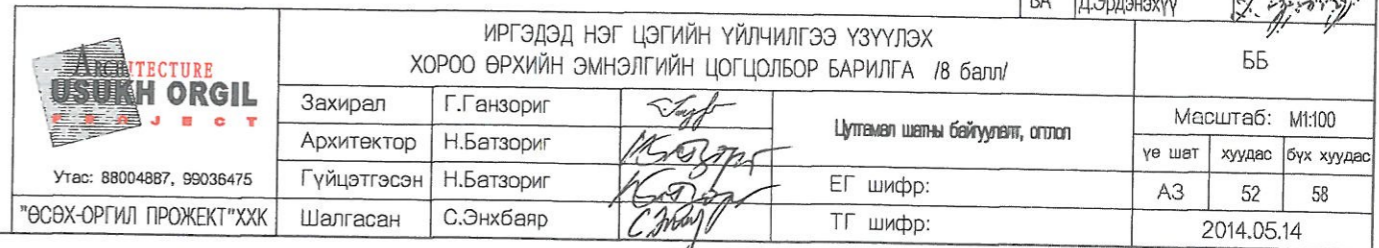 БА Д.Эрдэнэхүү
ARCHITECTURE
USUKH ORGIL
PROJECT
Утас: 88004887, 99036475
"ӨСӨХ-ОРГИЛ ПРОЖЕКТ"ХХК
ИРГЭДЭД НЭГ ЦЭГИЙН ҮЙЛЧИЛГЭЭ ҮЗҮҮЛЭХ
ХОРОО ӨРХИЙН ЭМНЭЛГИЙН ЦОГЦОЛБОР БАРИЛГА /8 балл/
ББ
Захирал Г.Ганзориг
Архитектор Н.Батзориг
Гүйцэтгэсэн Н.Батзориг
Шалгасан С.Энхбаяр
Цутгамал шатны байгуулалт, огтлол
ЕГ шифр:
ТГ шифр:
Масштаб: М1:100
үе шат хуудас бүх хуудас
А3 52 58
2014.05.14